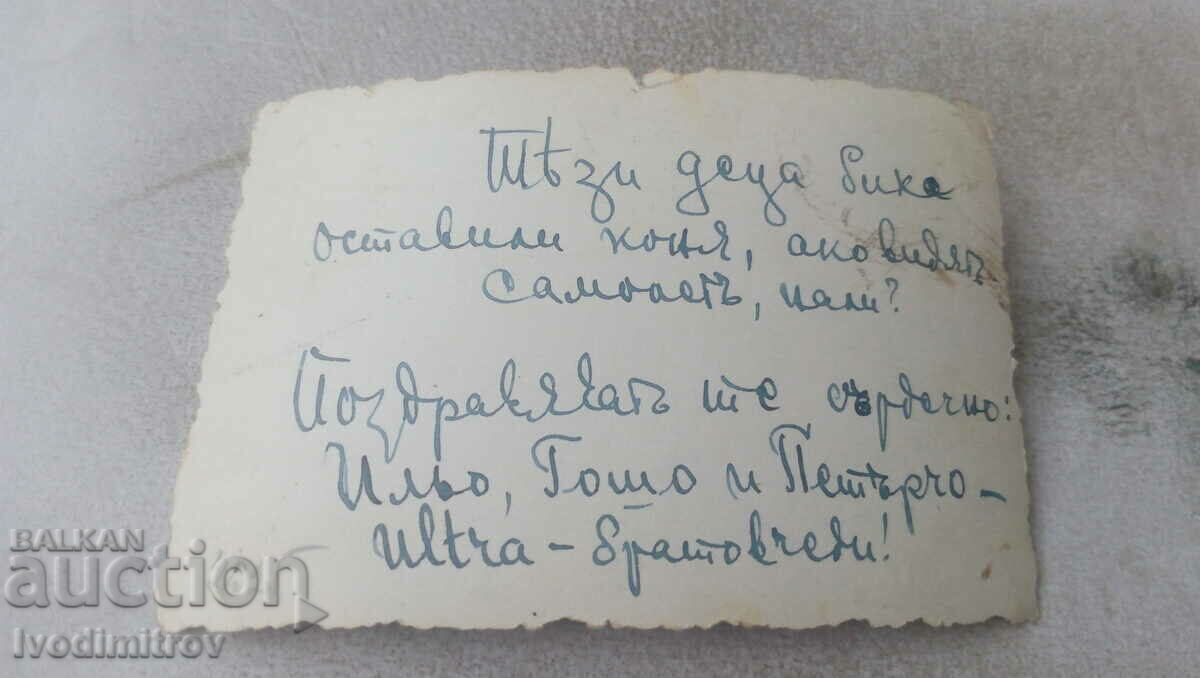 Тѣзи деца биха
оставили коня, ако видятъ
самолетъ, нали?
Поздравяватъ те сърдечно:
Ильо, Гошо и Петърчо –
ultra – братовчеди!
BALKAN
auction
Ivodimitrov